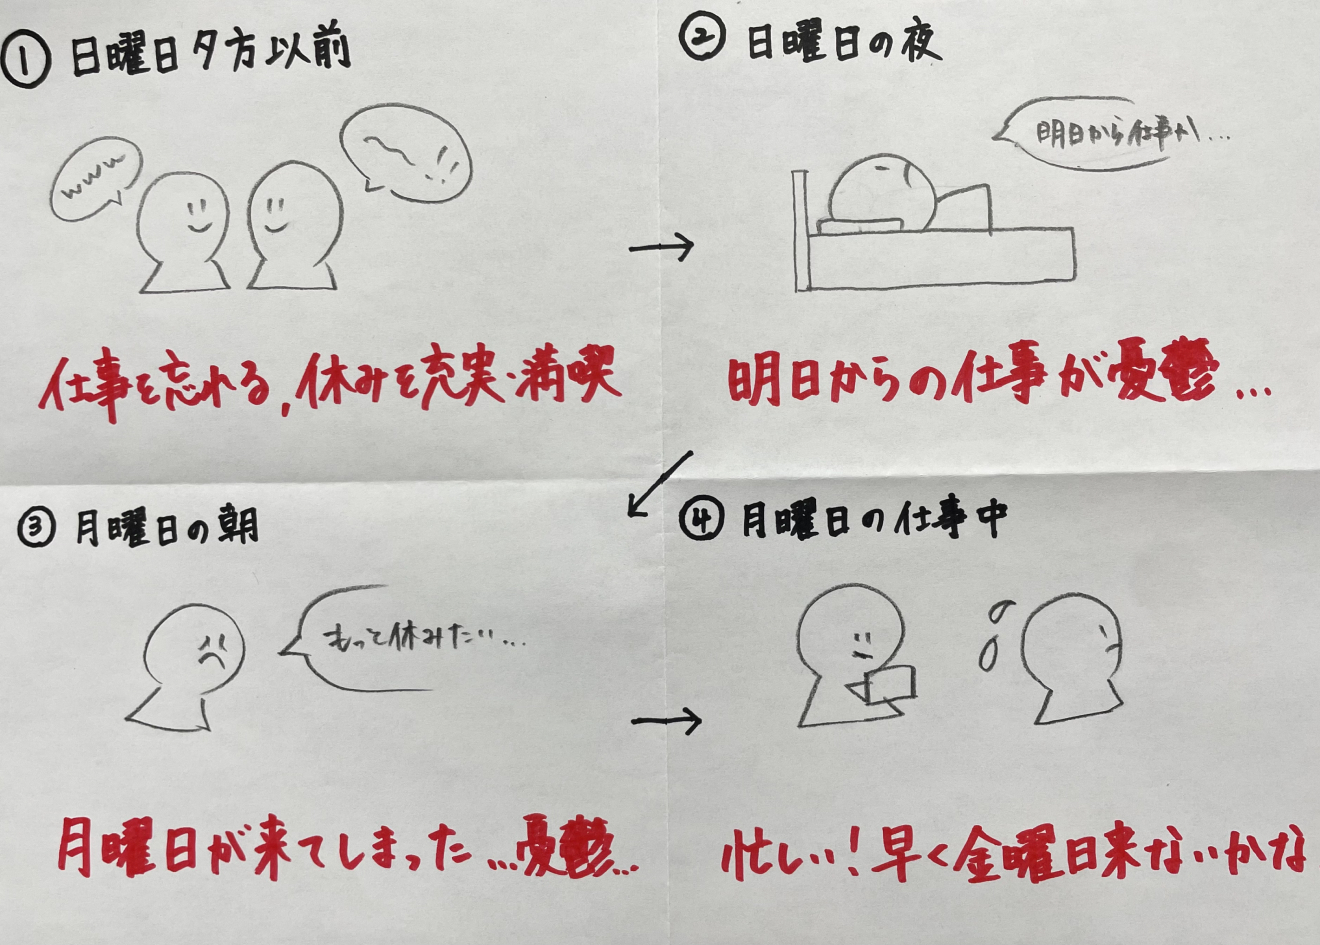 ① 日曜日夕方以前
www
仕事を忘れる,休みを充実・満喫
② 日曜日の夜
明日から仕事か...
明日からの仕事が憂鬱...
③ 月曜日の朝
もって休みたい...
月曜日が来てしまった...憂鬱...
④ 月曜日の仕事中
忙しい!早く金曜日来ないかな